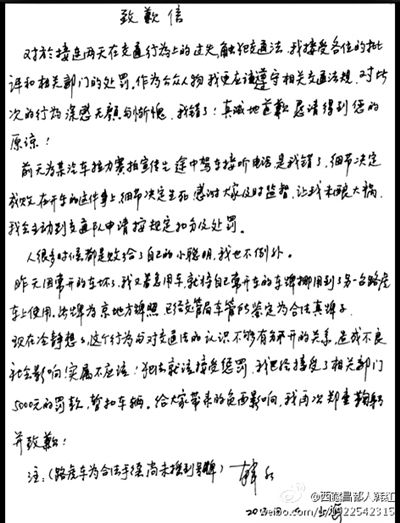 致歉信
对于接连两天在交通行为上的过失,触犯交通法,我接受各位的批
评和相关部门的处罚。作为公众人物我更应该遵守相关交通法规,对此
次的行为深感无颜与惭愧,我错了!真诚地道歉恳请得到您的
原谅!
前天为某汽车接力赛拍宣传片途中驾车接听电话是我错了,细节决定
成败在开车的这件事上细节决定生死 感谢大家及时监督,让我未酿大祸,
我会主动到交通队申请按规定扣分及处罚。
人很多时候都是败给了自己的小聪明,我也不例外。
昨天因常开的车坏了,我又着急用车就将自己常开车的车牌挪用到了另一台路虎
车上使用,此牌为京地方牌照,已经交管局车管所鉴定为合法真牌子
现在冷静想想,这个行为与对交通法的认识不够有分不开的关系,造成不良
社会影响!实属不应该!犯法就该接受惩罚,我已经接受了相关部门
5000元的罚款,暂扣车辆。给大家带来的负面影响,我再次郑重鞠躬
并致歉!
注:(路虎车为合法手续尚未换到号牌)
韩红
@西藏昌都人韩红
weibo.com/u/1922542315